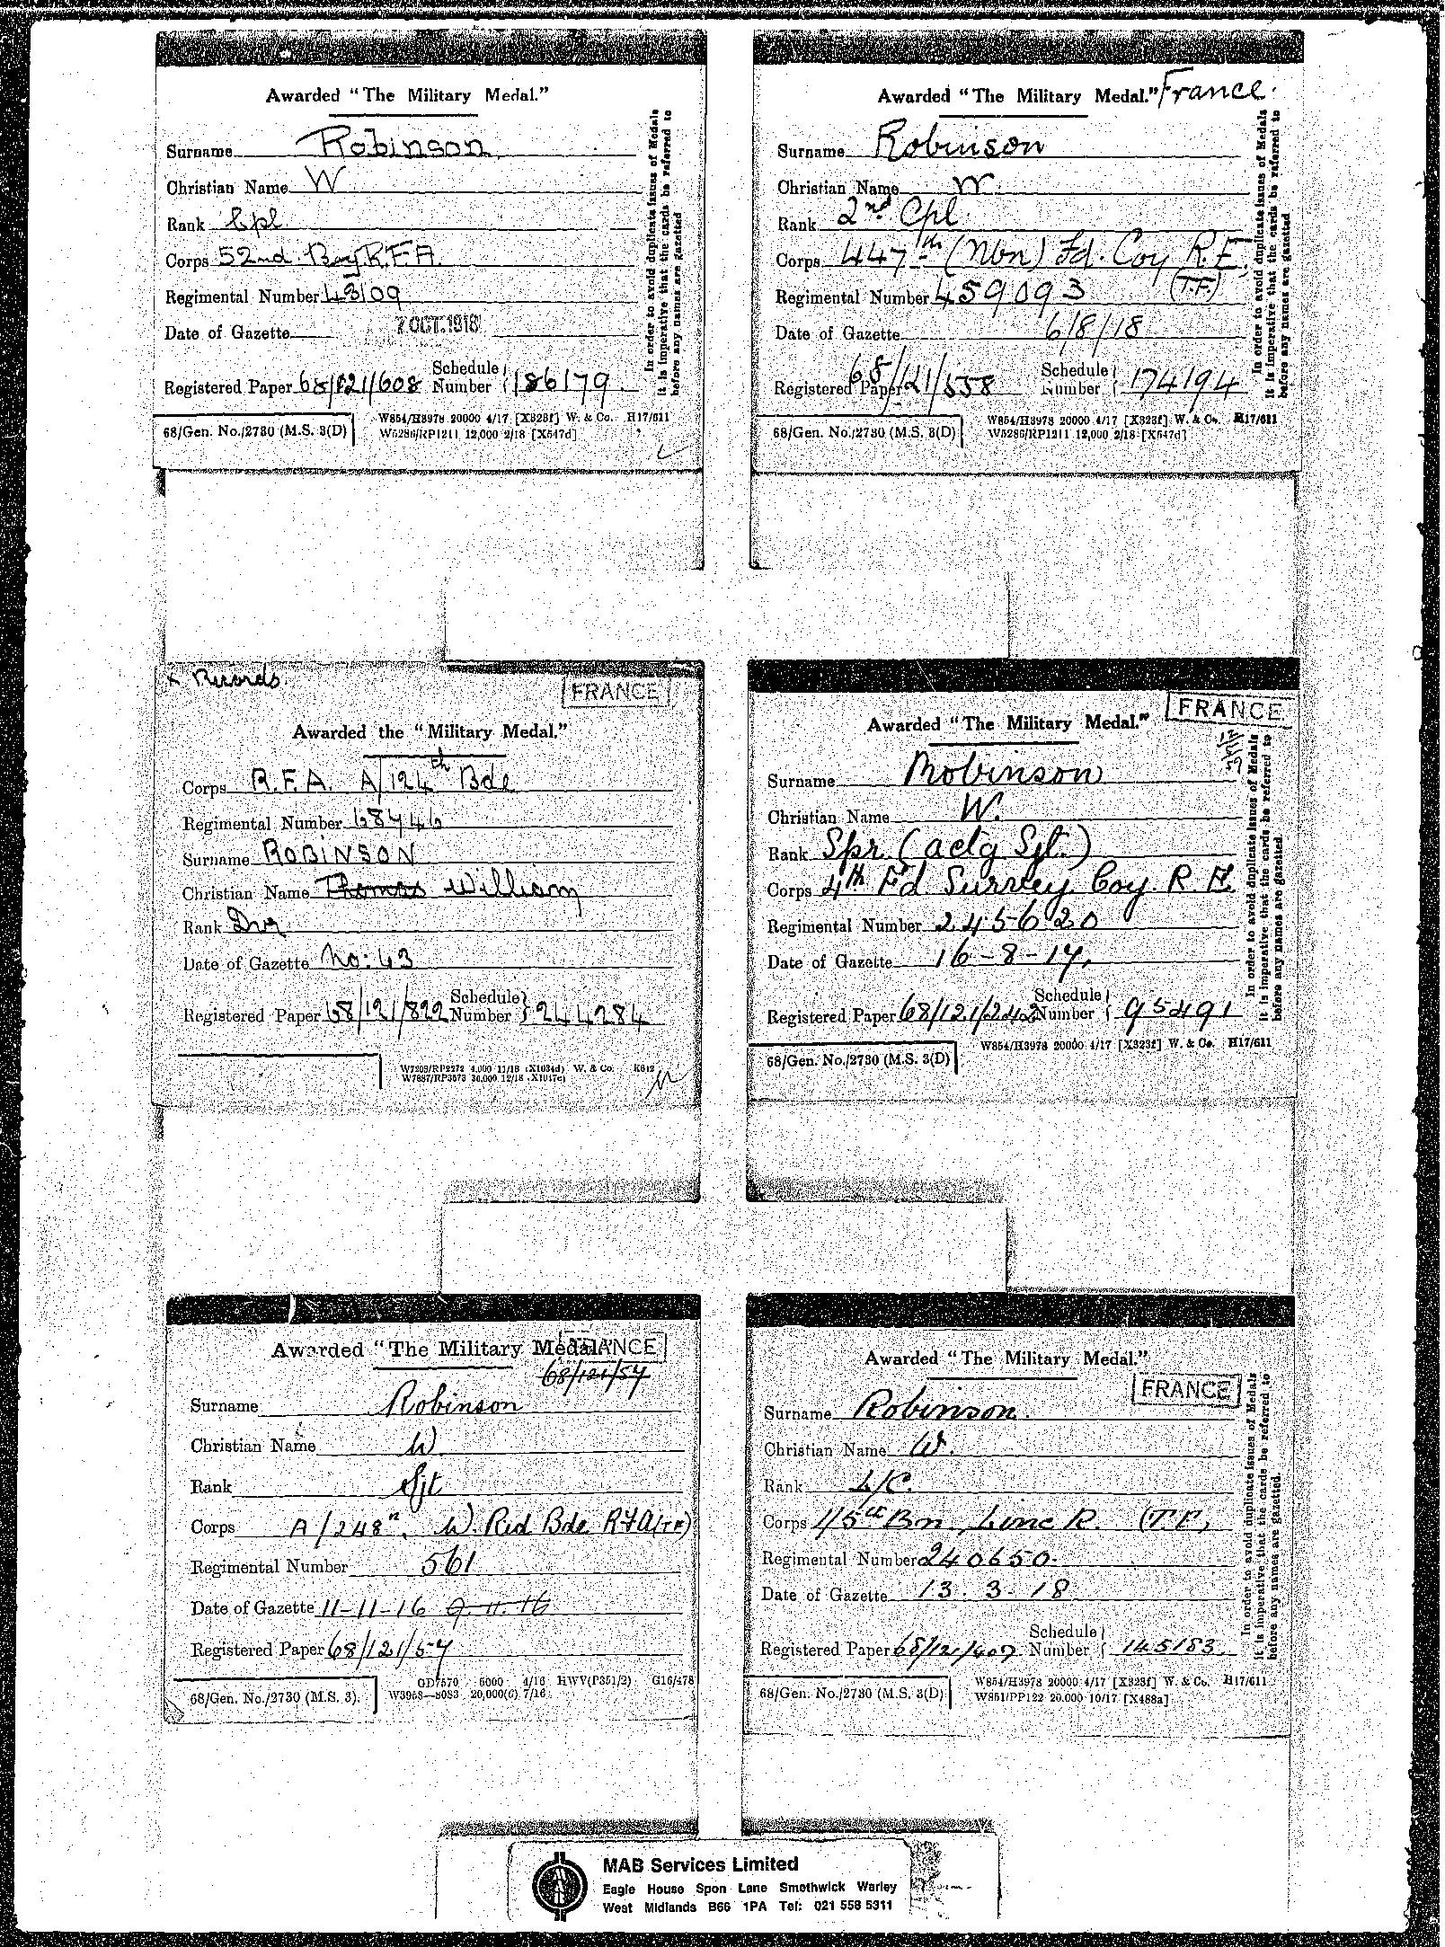 Awarded "The Military Medal."
Surname Robinson
Christian Name W
Rank Cpl
Corps 52nd Bay R.F.A.
Regimental Number 43109
Date of Gazette 7 OCT. 1918
Registered Paper 68/121/608 Schedule Number 186179
68/Gen. No./2730 (M.S. 3(D)
W854/H3978 20000 4/17 [X323f] W. & Co. H17/611
W5286/RP1211 12,000 2/18 [X547d]
In order to avoid duplicate issues of Medals
it is imperative that the cards be referred to
before any names are gazetted
Awarded "The Military Medal." France.
Surname Robinson
Christian Name W.
Rank 2nd Cpl
Corps 447th (Nbn) Fd. Coy R.E.
(T.F.)
Regimental Number 459093
Date of Gazette 6/8/18
Registered Paper 68/121/558 Schedule Number 174194
68/Gen. No./2730 (M.S. 3(D)
W854/H3978 20000 4/17 [X323f] W. & Co. H17/611
W5286/RP1211 12,000 2/18 [X547d]
In order to avoid duplicate issues of Medals
it is imperative that the cards be referred to
before any names are gazetted
x Records
FRANCE
Awarded the "Military Medal."
Corps R.F.A. A/124th Bde
Regimental Number 68446
Surname ROBINSON
Christian Name Thomas William
Rank Dvr
Date of Gazette No: 43
Registered Paper 68/121/822 Schedule Number 244284
W7209/RP2272 4,000 11/18 (X1034d) W. & Co. K612
W7887/RP3573 30,000 12/18
FRANCE
Awarded "The Military Medal."
Surname Robinson
Christian Name W.
Rank Spr. (actg Sjt.)
Corps 4th F'd Survey Coy. R.E.
Regimental Number 245620
Date of Gazette 16-8-17.
Registered Paper 68/121/242 Schedule Number 95491
68/Gen. No./2730 (M.S. 3(D)
W854/H3978 20000 4/17 [X323f] W. & Co. H17/611
In order to avoid duplicate issues of Medals
it is imperative that the cards be referred to
before any names are gazetted
Awarded "The Military Medal." FRANCE
68/121/54
Surname Robinson
Christian Name W
Rank Sjt
Corps A/248th, W. Rid Bde RFA (TF)
Regimental Number 561
Date of Gazette 11-11-16 9.11.16
Registered Paper 68/121/54
68/Gen. No./2730 (M.S. 3).
GD7570 5000 4/16 HWV(P351/2) G16/478
W3958—8083 20,000(6) 7/16
Awarded "The Military Medal."
FRANCE
Surname Robinson.
Christian Name W.
Rank L/C.
Corps 1/5th Bn. Linc R. (T.F.)
Regimental Number 240650.
Date of Gazette 13.3.18
Registered Paper 68/121/407 Schedule Number 145183
68/Gen. No./2730 (M.S. 3(D)
W854/H3978 20000 4/17 [X323f] W. & Co. H17/611
W851/PP122 20,000 10/17 [X488a]
In order to avoid duplicate issues of Medals
it is imperative that the cards be referred to
before any names are gazetted.
MAB Services Limited
Eagle House Spon Lane Smethwick Warley
West Midlands B66 1PA Tel: 021 558 5311